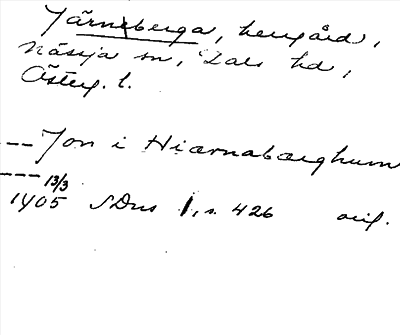 Järnsberga, herrgård,
Nässja sn, Dals hd,
Österg. l.
--- Jon i Hiærnabærghum
--- 13/3
1405 SDns 1, s. 426 orig.